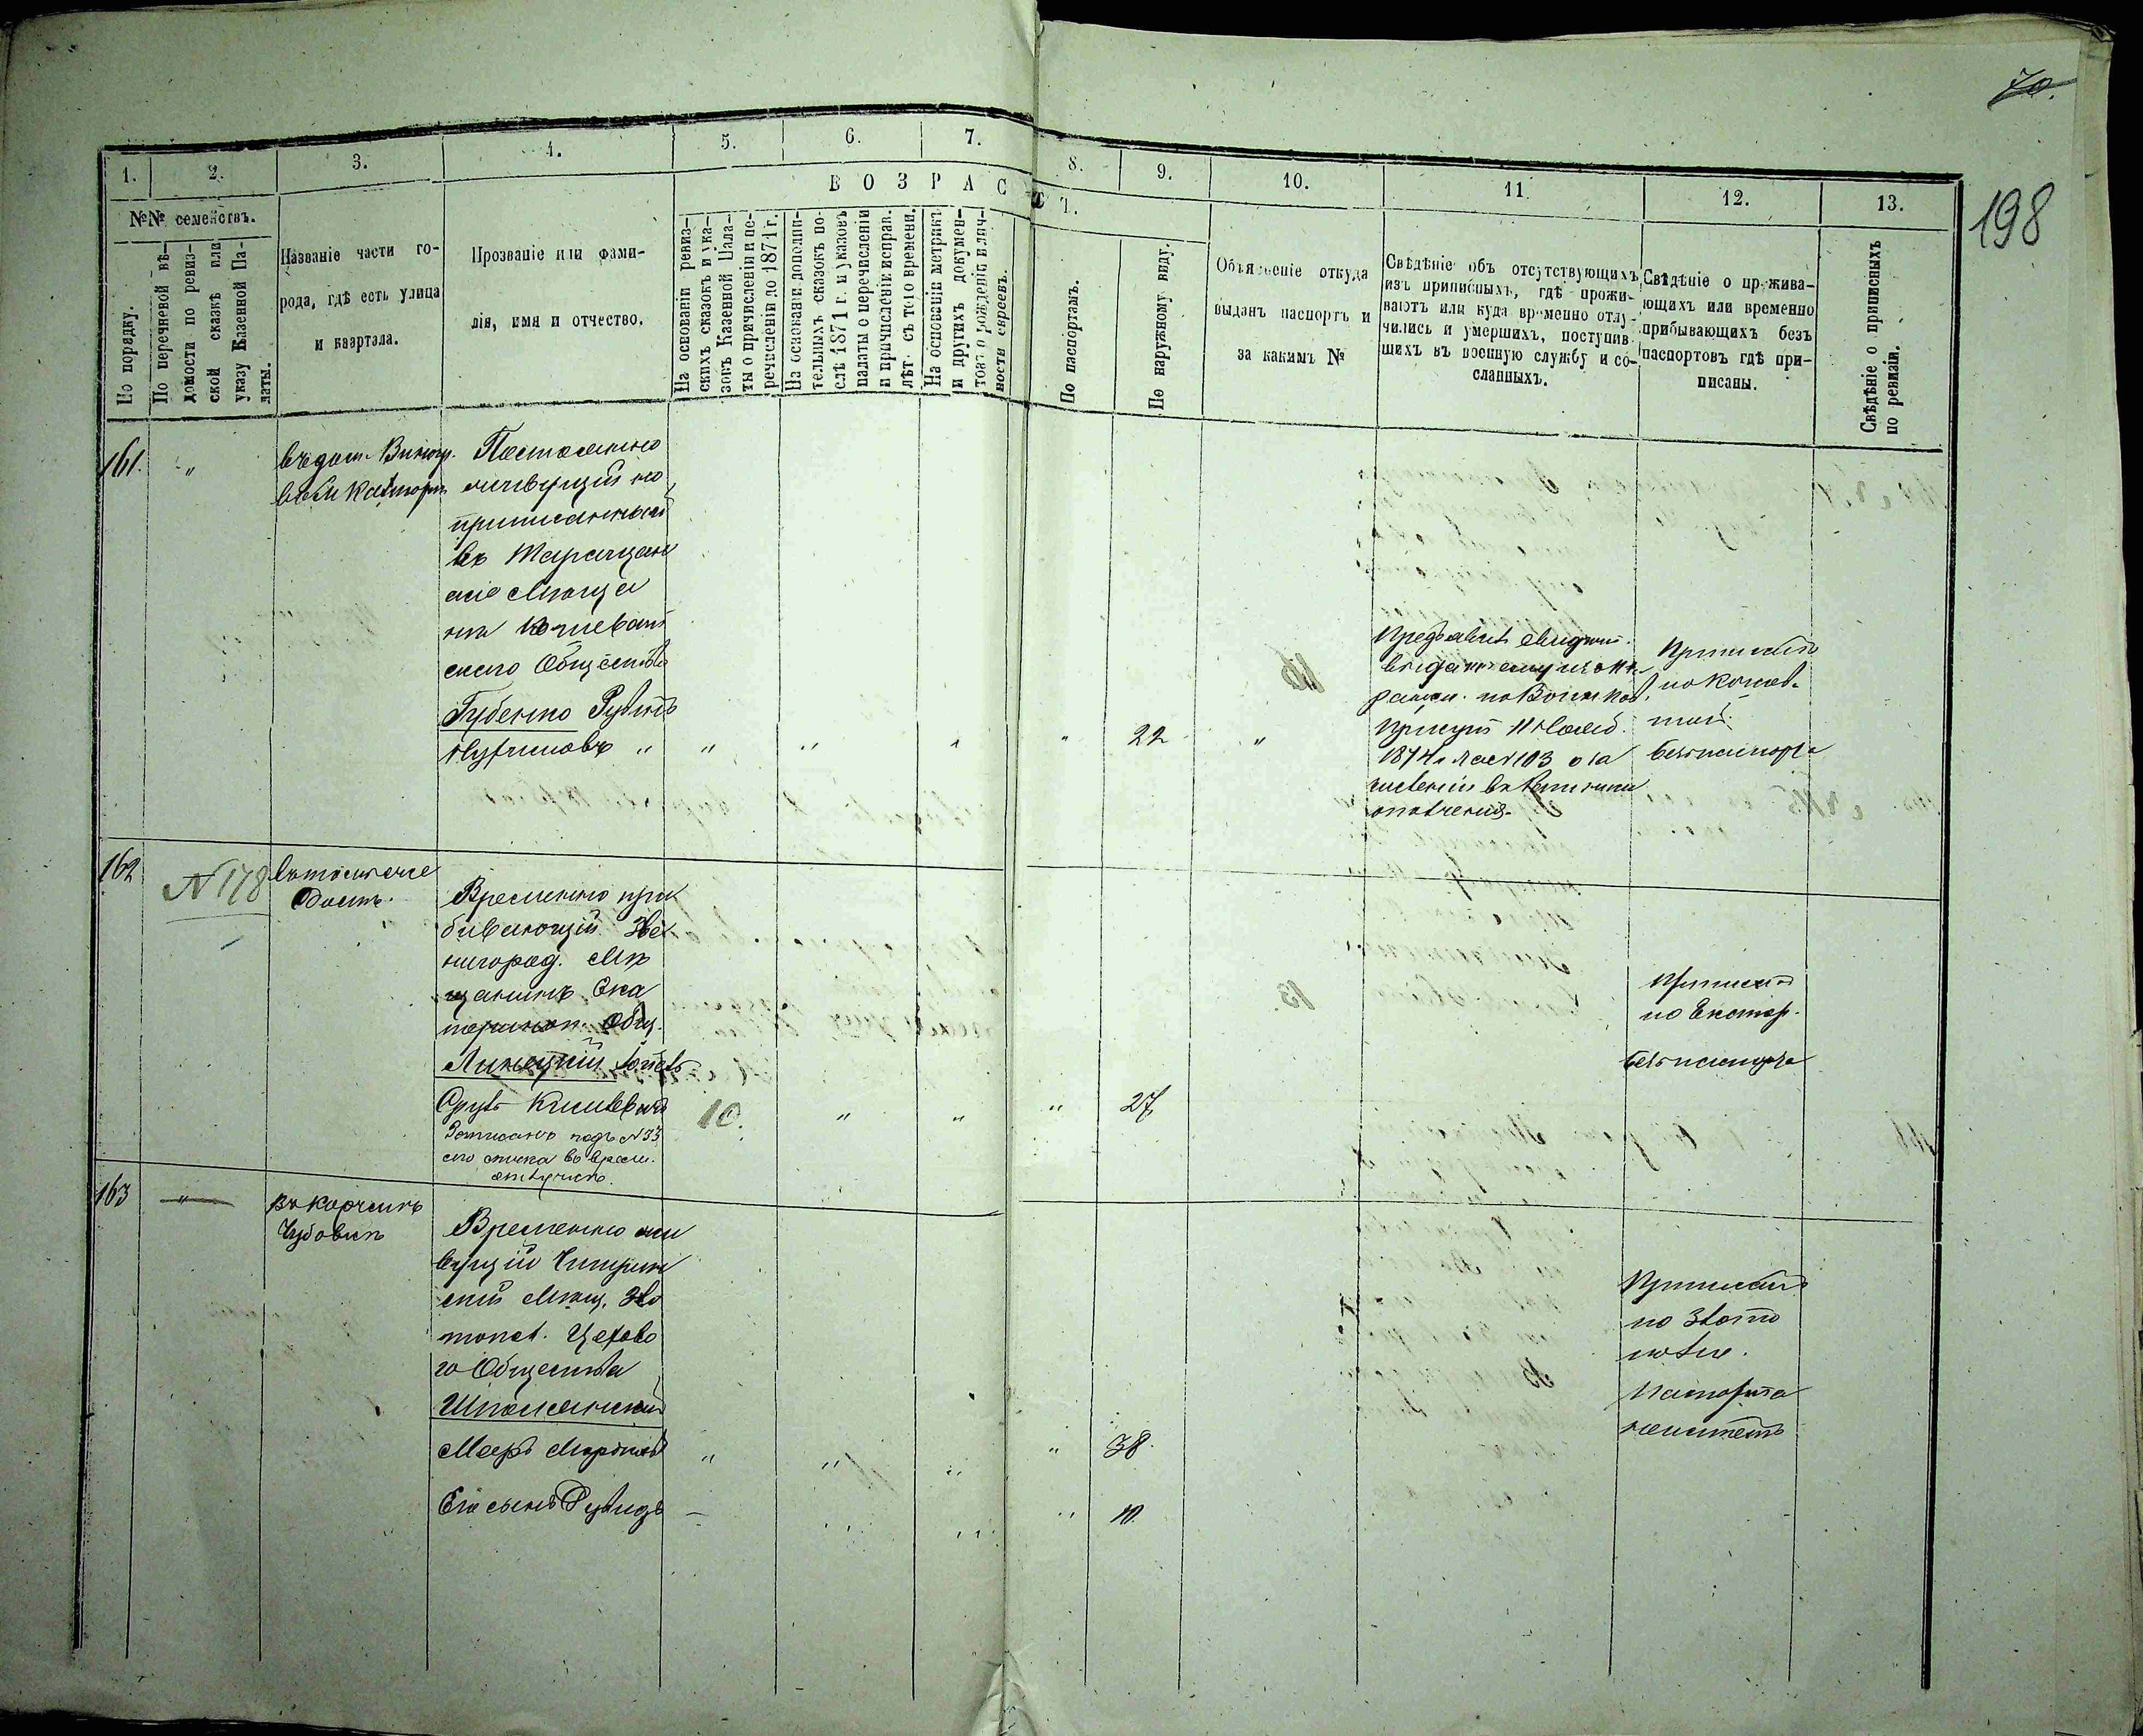 70.
198
1.
2.
3.
4.
5.
6.
7.
8.
9.
10.
11.
12.
13.
№№ семействъ.
По порядку.
По перечневой вѣ-
домости по ревиз-
ской сказкѣ или
указу Казенной Па-
латы.
Названіе части го-
рода, гдѣ есть улица
и квартала.
Прозваніе или фами-
лія, имя и отчество.
ВОЗРАСТ.
На основаніи ревиз-
скихъ сказокъ и ука-
зовъ Казенной Пала-
ты о причисленіи и пе-
речисленіи до 1871 г.
На основаніи дополни-
тельныхъ сказокъ по-
слѣ 1871 г. и указовъ
палаты о перечисленіи
и причисленіи исправ.
лѣт. съ того времени.
На основаніи метрикъ
и другихъ докумен-
товъ о рожденіи и лич-
ности евреевъ.
По паспортамъ.
По наружному виду.
Объясненіе откуда
выданъ паспортъ и
за какимъ №
Свѣдѣніе объ отсутствующихъ
изъ приписныхъ, гдѣ прожи-
ваютъ или куда временно отлу-
чились и умершихъ, поступив-
шихъ въ военную службу и со-
сланныхъ.
Свѣдѣніе о прожива-
ющихъ или временно
прибывающихъ безъ
паспортовъ гдѣ при-
писаны.
Свѣдѣніе о приписныхъ
по ревизіи.
161.
"
въ домѣ
Постоянно
живущій но
приписанный
въ Таращан
скіе Мѣща
не Кошеват
скаго Общества
Губенко Рувинъ
" " " " "
22
"
Предъявилъ свидѣт.
выданное ему
по Воинской
Присут. 11 Нояб.
1874 г. за № 103 о за
численіи въ
ополченія.
Приписанъ
по Кошев.
той.
безъ паспорта
162
N 178
Домъ.
Временно при
бывающій Зве
нигород. Мѣ
щанинъ Ека
териноп. Общ.
Линецкій
Сруль
Записанъ подъ N 33
сего списка во врем.
отлучкѣ.
10.
" " "
27
Приписанъ
по Екатер.
безъ паспорта
163
"
въ корчмѣ
Чубовкѣ
Временно жи
вущій Чигирин
скій Мѣщ. Зло
топол. Цехово
го Общества
Шполянскій
Мееръ
" " " "
38.
Его сынъ Рувидъ
- " " "
10.
Приписанъ
по Злато
полю.
Паспорта
неимѣетъ